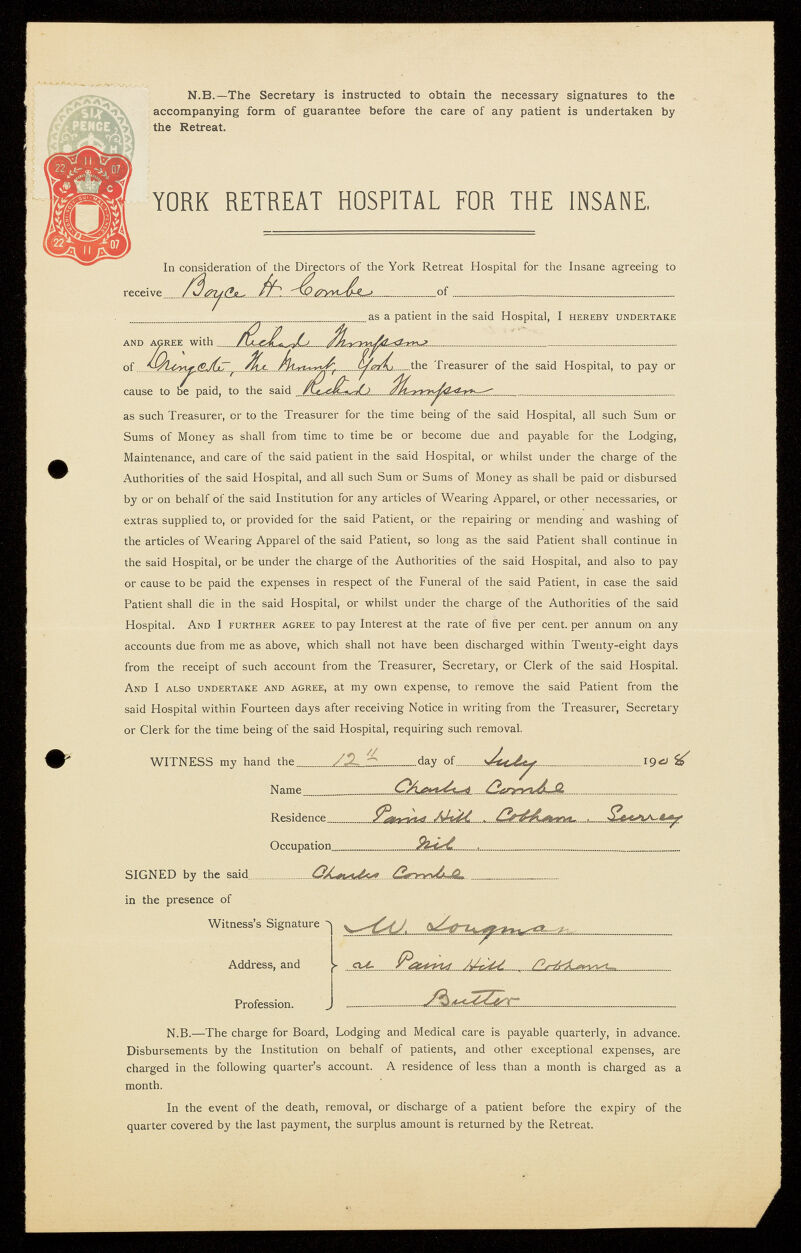 N.B.—The Secretary is instructed to obtain the necessary signatures to the
accompanying form of guarantee before the care of any patient is undertaken by
the Retreat.
SIX
PENCE
22 11 07
22 11 07
YORK RETREAT HOSPITAL FOR THE INSANE.
In consideration of the Directors of the York Retreat Hospital for the Insane agreeing to
receive Boyce H. Combe of
as a patient in the said Hospital, I HEREBY UNDERTAKE
AND AGREE with Richard Thompson
of Dringcote, The Mount, York the Treasurer of the said Hospital, to pay or
cause to be paid, to the said Richard Thompson
as such Treasurer, or to the Treasurer for the time being of the said Hospital, all such Sum or
Sums of Money as shall from time to time be or become due and payable for the Lodging,
Maintenance, and care of the said patient in the said Hospital, or whilst under the charge of the
Authorities of the said Hospital, and all such Sum or Sums of Money as shall be paid or disbursed
by or on behalf of the said Institution for any articles of Wearing Apparel, or other necessaries, or
extras supplied to, or provided for the said Patient, or the repairing or mending and washing of
the articles of Wearing Apparel of the said Patient, so long as the said Patient shall continue in
the said Hospital, or be under the charge of the Authorities of the said Hospital, and also to pay
or cause to be paid the expenses in respect of the Funeral of the said Patient, in case the said
Patient shall die in the said Hospital, or whilst under the charge of the Authorities of the said
Hospital. AND I FURTHER AGREE to pay Interest at the rate of five per cent. per annum on any
accounts due from me as above, which shall not have been discharged within Twenty-eight days
from the receipt of such account from the Treasurer, Secretary, or Clerk of the said Hospital.
AND I ALSO UNDERTAKE AND AGREE, at my own expense, to remove the said Patient from the
said Hospital within Fourteen days after receiving Notice in writing from the Treasurer, Secretary
or Clerk for the time being of the said Hospital, requiring such removal.
WITNESS my hand the 12th day of July 1908
Name Charles Combe
Residence Pains Hill. Cobham. Surrey
Occupation Nil.
SIGNED by the said Charles Combe
in the presence of
Witness's Signature W. Longman
Address, and at Pains Hill. Cobham
Profession. Butler
N.B.—The charge for Board, Lodging and Medical care is payable quarterly, in advance.
Disbursements by the Institution on behalf of patients, and other exceptional expenses, are
charged in the following quarter's account. A residence of less than a month is charged as a
month.
In the event of the death, removal, or discharge of a patient before the expiry of the
quarter covered by the last payment, the surplus amount is returned by the Retreat.